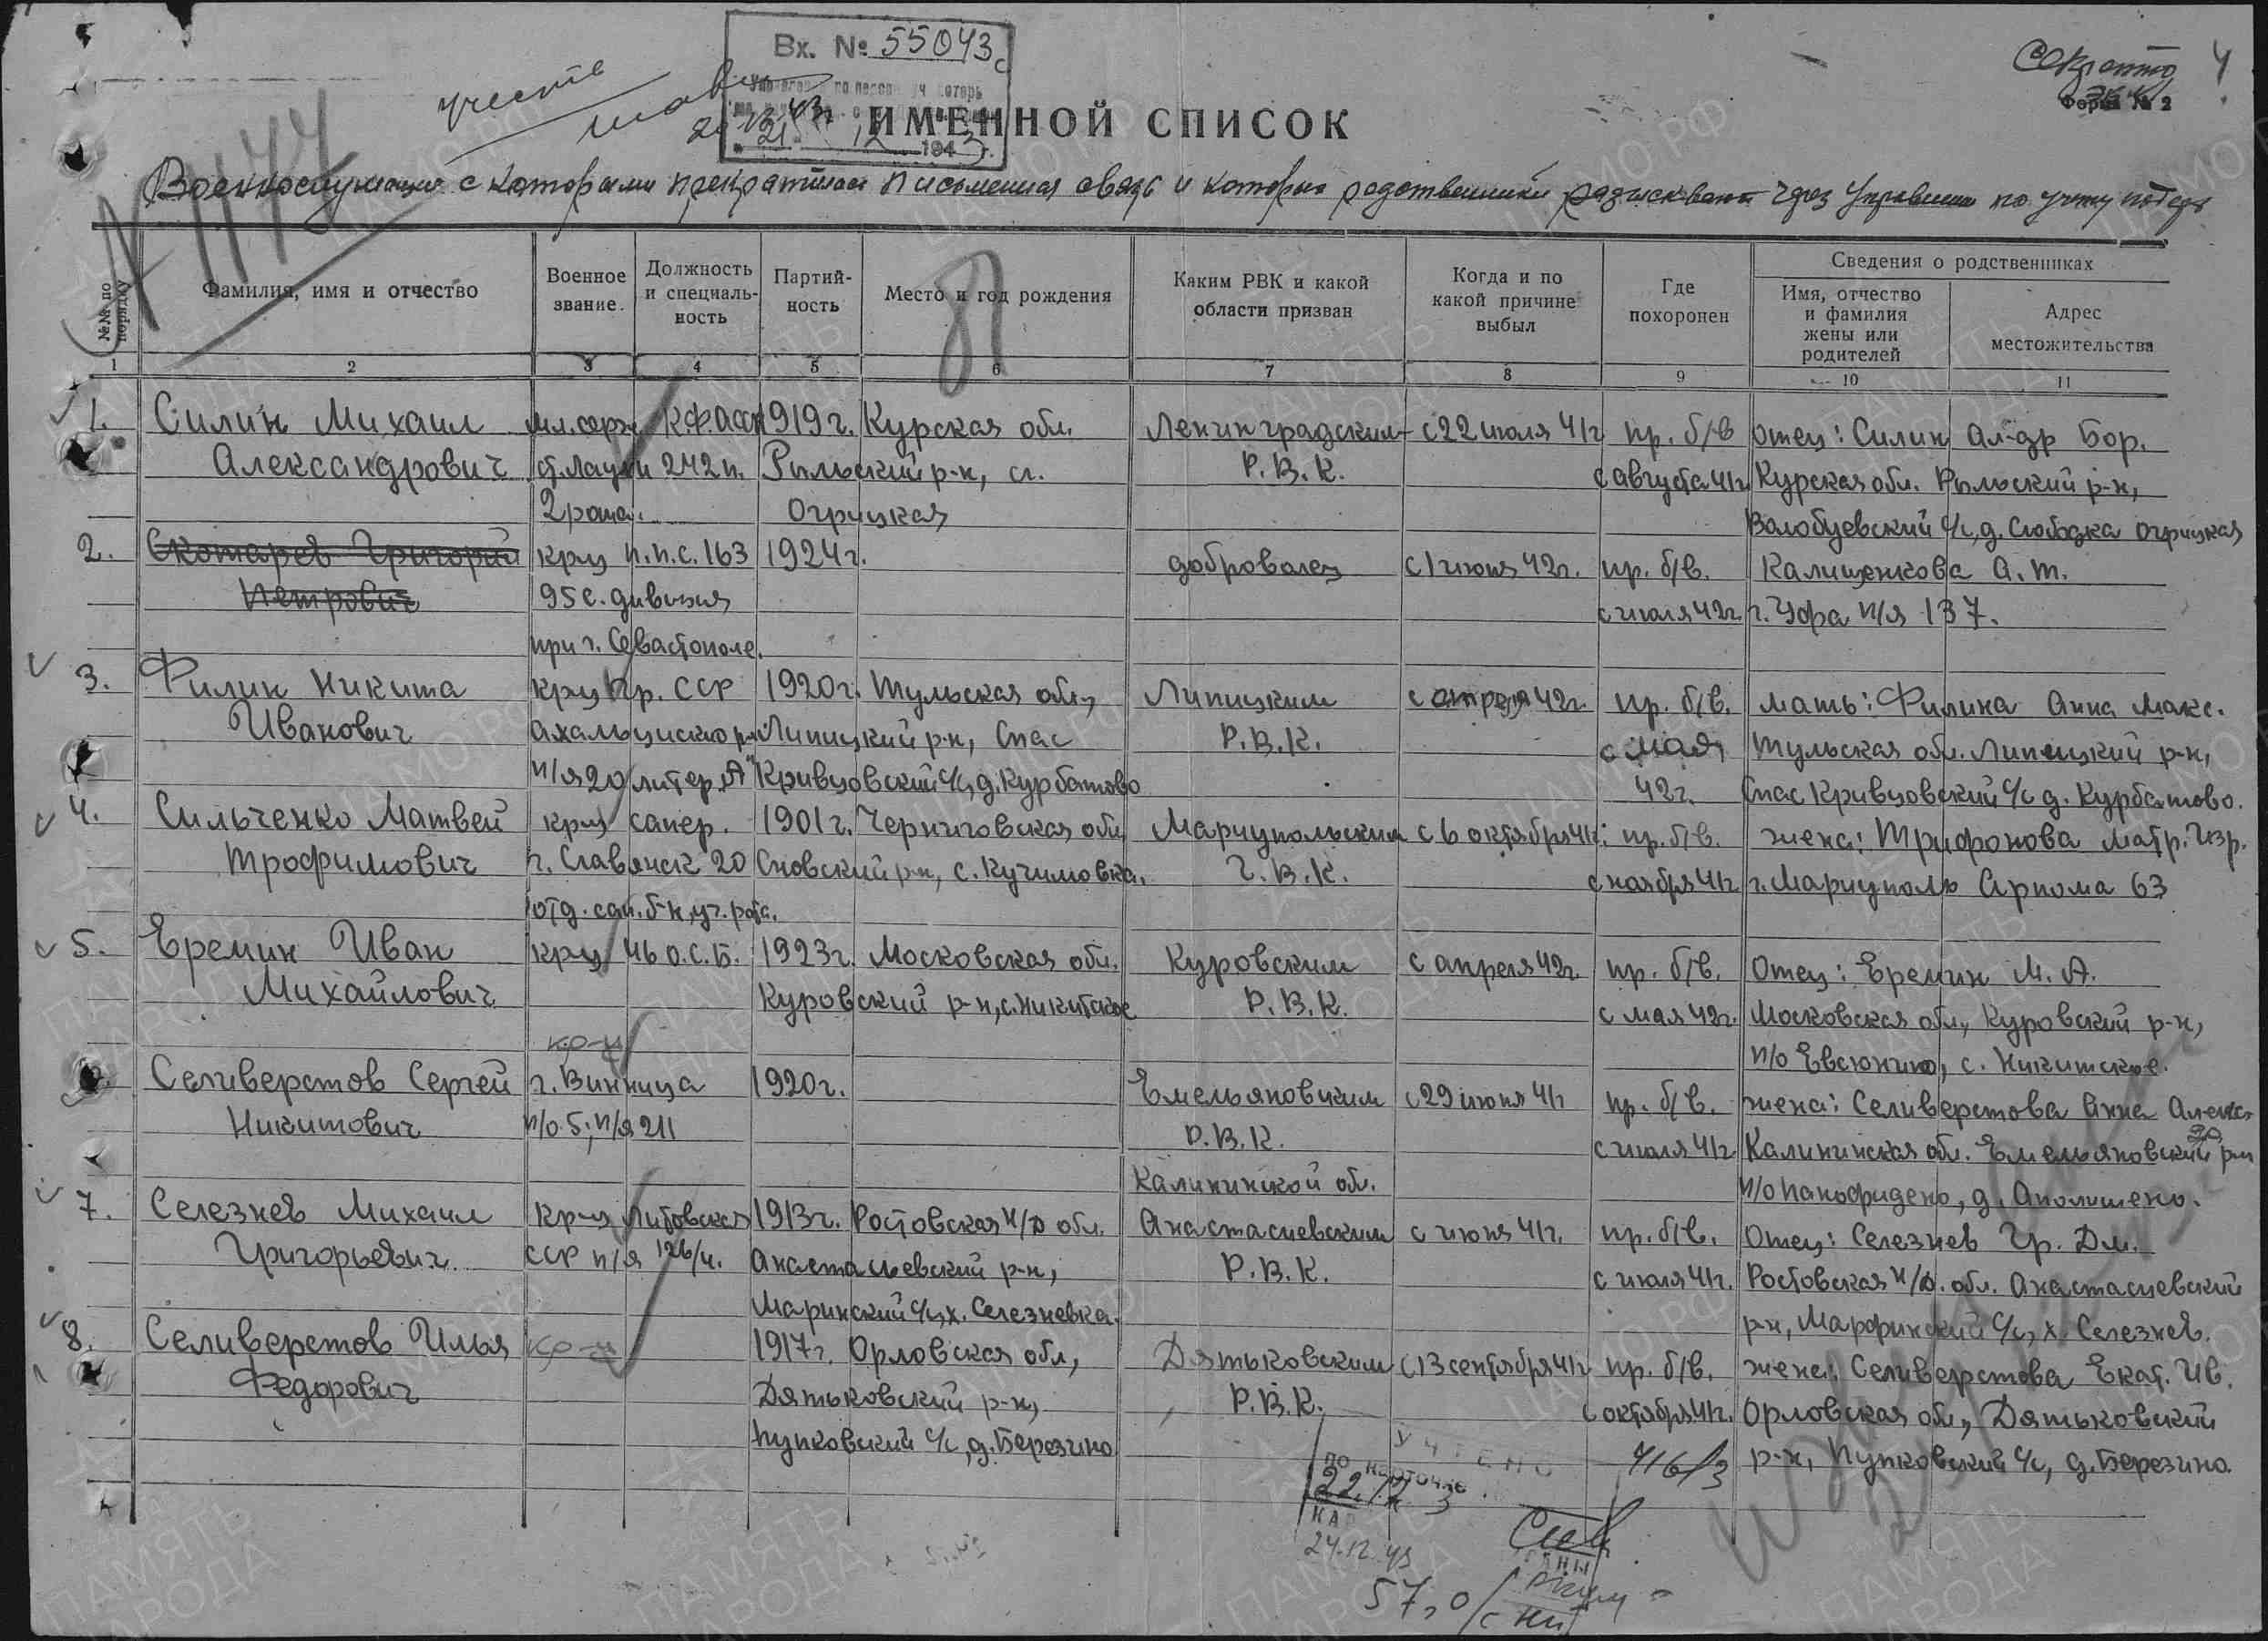 Вх. № 55043с
21 12 1943 г.
учесть
Секретно
4
Форма № 2
ИМЕННОЙ СПИСОК
Военнослужащие с которыми прекратилась письменная связь и которых родственники разыскивают через Управление по учету потерь
№№ по порядку
Фамилия, имя и отчество
Военное звание
Должность и специальность
Партийность
Место и год рождения
Каким РВК и какой области призван
Когда и по какой причине выбыл
Где похоронен
Сведения о родственниках
Имя, отчество и фамилия жены или родителей
Адрес местожительства
1 2 3 4 5 6 7 8 9 10 11
1. Силин Михаил мл.серж. К.Ф.АССР 1919г. Курская обл. Ленинградским с 22 июля 41г пр. б/в отец: Силин Ал-др Бор.
Александрович 242 п. Рыльский р-н, сл. Р.В.К. с августа 41г Курская обл. Рыльский р-н,
2 рота. Огрицкая Волобуевский с/с, д. Слободка Огрицкая
2. Скотарев Григорий крц п.п.с. 163 1924г. доброволец с 1 июня 42г. пр. б/в. Калищенкова А.Т.
Петрович 95 с. дивизия с июля 42г. г. Уфа п/я 137.
при г. Севастополе.
3. Филин Никита крц Гр. ССР 1920г. Тульская обл, Липицким с апреля 42г. пр. б/в. мать: Филина Анна Макс.
Иванович Липицкий р-н, Спас Р.В.К. с мая Тульская обл. Липицкий р-н,
п/я 20 литер „А" Кривцовский с/с, д. Курбатово 42г. Спас Кривцовский с/с д. Курбатово.
4. Сильченко Матвей крц сапер. 1901г. Черниговская обл Мариупольским с 6 октября 41г. пр. б/в. жена: Трифонова Матр. Игр.
Трофимович г. Славянск 20 Сновский р-н, с. Кучиновка. Г.В.К. с ноября 41г г. Мариуполь Артома 63
отд. сап. б-н, уч. рота.
5. Еремин Иван крц 46 О.С.Б. 1923г. Московская обл. Куровским с апреля 42г. пр. б/в. Отец: Еремин М.А.
Михайлович Куровский р-н, с. Никитское Р.В.К. с мая 42г. Московская обл, Куровский р-н,
кр-ц п/о Евсюнино, с. Никитское.
Селиверстов Сергей г. Винница 1920г. Емельяновским с 29 июня 41г пр. б/в. жена: Селиверстова Анна Алекс
Никитович п/о 5, п/я 211 Р.В.К. с июля 41г Калининская обл. Емельяновский р-н
Калининской обл. п/о Панафидено, д. Аполишено.
7. Селезнев Михаил крц Литовская 1913г. Ростовская н/Д обл. Анастасиевским с июня 41г. пр. б/в. Отец: Селезнев Гр. Дм.
Григорьевич ССР п/я 126/4. Анастасьевский р-н, Р.В.К. с июля 41г. Ростовская н/Д. обл. Анастасиевский
Маринский с/с, х. Селезневка. р-н, Марфинский с/с, х. Селезнев.
8. Селиверстов Илья кр-ц 1917г. Орловская обл, Дятьковским с 13 сентября 41г пр. б/в. жена: Селиверстова Екат. Ив.
Федорович Дятьковский р-н, Р.В.К. с октября 41г. Орловская обл, Дятьковский
Пупковский с/с, д. Березино 416/3 р-н, Пупковский с/с, д. Березино.
УЧТЕНО
по карточке
22/12 3
24.12.43
57,0